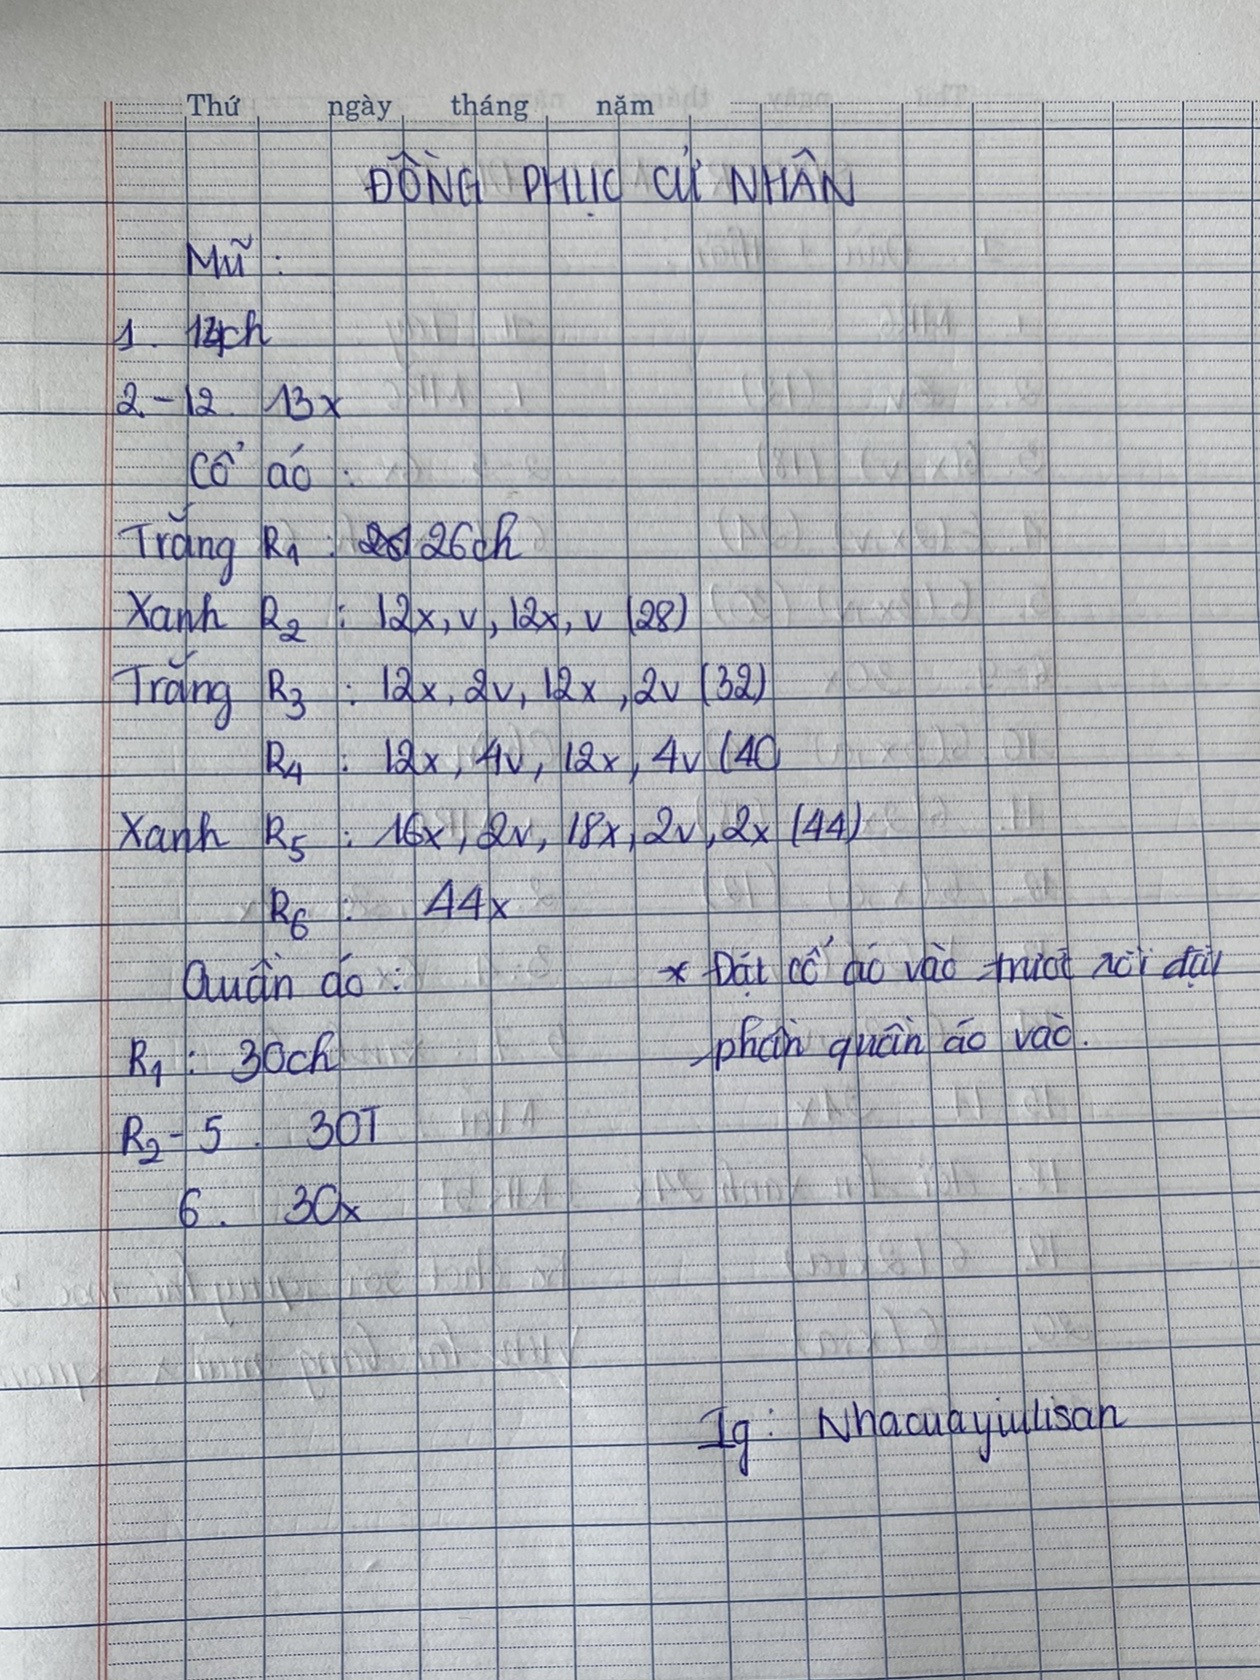 Thứ ngày tháng năm
ĐỒNG PHỤC CỬ NHÂN
Mũ :
1. 14ch
2-12. 13x
Cổ áo :
Trắng R1 : 26ch
Xanh R2 : 12x, v, 12x, v (28)
Trắng R3 : 12x, 2v, 12x, 2v (32)
R4 : 12x, 4v, 12x, 4v (40
Xanh R5 : 16x, 2v, 18x, 2v, 2x (44)
R6 : 44x
Quần áo :
* Đặt cổ áo vào trước rồi đặt
phần quần áo vào.
R1 : 30ch
R2-5. 30T
6. 30x
Ig: Nhacuayiulisan